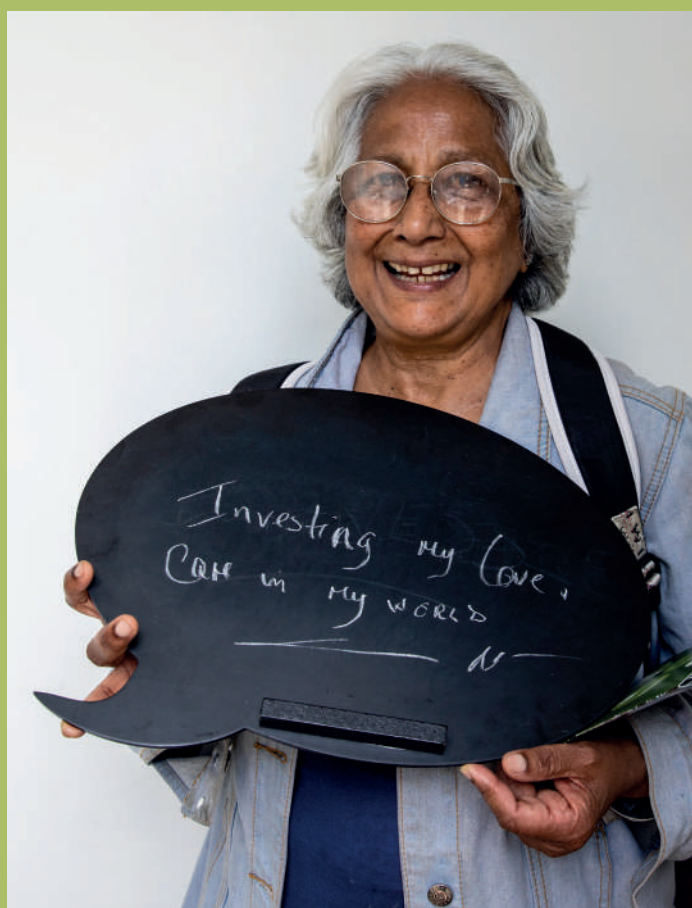 Investing my love,
Care in my WORLD